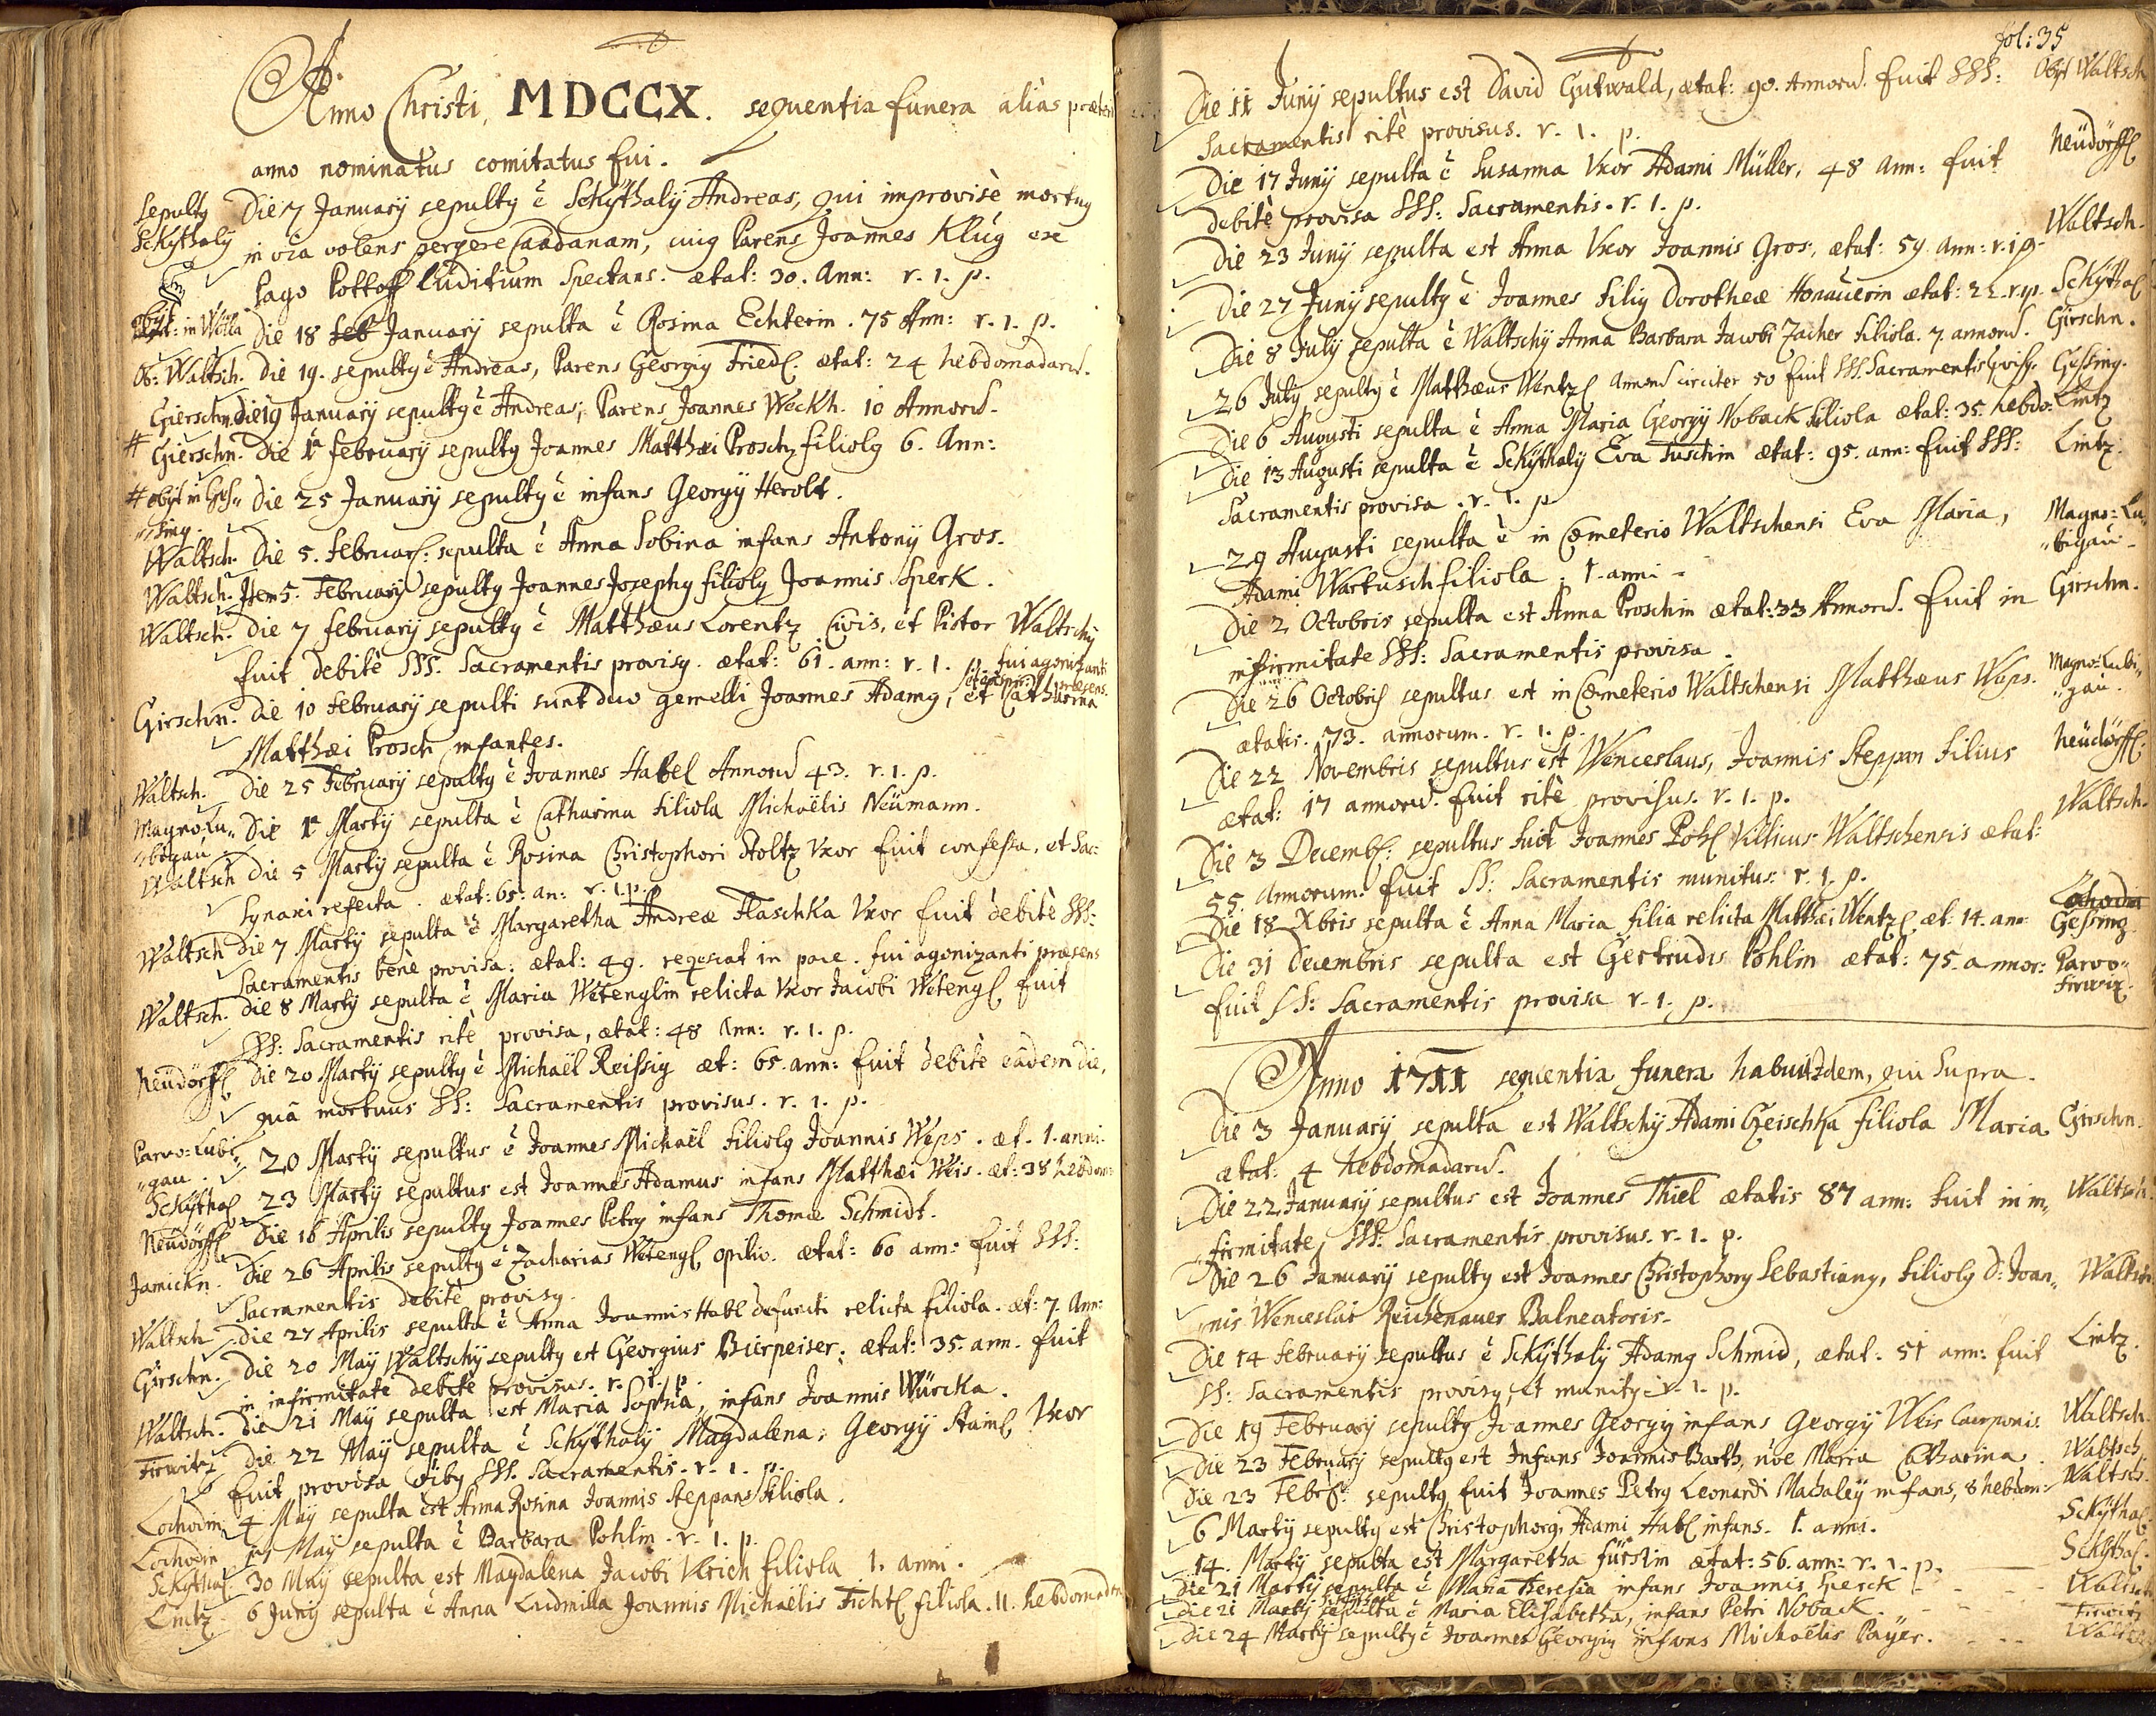 Anno Christi, MDCCX. sequentia funera alias præteri
anno nominatus comitatus fui.
Sepultg Die 7 January sepultg ẽ Schÿthalij Andreas, qui improvisè mortug
Schÿthalij in via volens pergere Caadanam, cuig Parens Joannes Klug ex
Pago Luditium Spectans. ætat: 30. Ann: r. i. p.
obijt: in Die 18 January sepulta ẽ Rosina Echterin. 75 Ann: r. i. p.
Ob: Waltsch. Die 19. sepultg ẽ Andreas, Parens Georgig Friedl. ætat: 24 hebdomadarũ.
Gierschn. die 19 January sepultg ẽ Andreas, Parens Joannes Weckh. 10 Annorũ.
# Gierschn. Die 1ª February sepultg Joannes Matthæi Prosch filiolg 6. Ann:
# obijt in Ges„ Die 25 January sepultg ẽ infans Georgij Herolt.
„sing.
Waltsch. Die 5. Februar: sepulta ẽ Anna Sobina infans Antonij Gros.
Waltsch. Item 5. February sepultg Joannes Josephg filiolg Joannis Sperk.
Waltsch. Die 7 February sepultg ẽ Matthæus Lorentz Civis, et Pistor Waltschij
fuit debitè SSS. Sacramentis provisg. ætat: 61. ann: r. i. p. fui agonizanti
præsens.
Girschn. Die 10 February sepulti sunt duo gemelli Joannes Adamg, et Catharina
Matthæi Prosch infantes.
Waltsch. Die 25 February sepultg ẽ Joannes Habel Annorũ 43. r. i. p.
Magno-Lu„ Die 1ª Martij sepulta ẽ Catharina filiola Michaëlis Neümann.
„bigau.
Waltsch Die 5 Martij sepulta ẽ Rosina Christophori Stoltz Uxor fuit confessa, et Sac:
Synaxi refecta. ætat: 65. an: r. i. p.
Waltsch Die 7 Martij sepulta ẽ Margaretha Andreæ Flaschka Uxor fuit debitè SSS:
Sacramentis bene provisa: ætat: 49. requiescat in pace. fui agonizanti præsens
Waltsch. Die 8 Martij sepulta ẽ Maria Wetenglin relicta Uxor Jacobi Wetengl fuit
SSS: Sacramentis ritè provisa, ætat: 48 Ann: r. i. p.
Neudörffl Die 20 Martij sepultg ẽ Michaël Reissig æt: 65. ann: fuit debitè eâdem die,
quâ mortuus SS: Sacramentis provisus. r. i. p.
Parvo-Lubi„ 20 Martij sepultus ẽ Joannes Michaël filiolg Joannis Weps. æt. 1. anni.
„gau.
Schÿthal 23 Martij sepultus est Joannes Adamus infans Matthæi Weis. æt: 38 hebdom:
Neudörffl Die 16 Aprilis sepultg Joannes Petrg infans Thomæ Schmidt.
Jamickn. Die 26 Aprilis sepultg ẽ Zacharias Wetengl, opilio. ætat: 60 ann: fuit SSS:
Sacramentis debitè provisg.
Waltsch Die 27 Aprilis sepulta ẽ Anna Joannis Habl defuncti relicta filiola. æt: 7. Ann:
Girschn. Die 20 Maij Waltschij sepultg est Georgius Bierpeiser, ætat: 35. ann. fuit
in infirmitate debitè provisus. r. i. p.
Waltsch. Die 21 Maij sepulta est Maria Sophia, infans Joannis Würcka.
Firwitz Die 22 Maij sepulta ẽ Schÿthalij Magdalena, Georgij Stainl Uxor
fuit provisa õiby SSS. Sacramentis. r. i. p.
Lochodin 4 Maij sepulta est Anna Rosina Joannis Steppans filiola.
Lochodin Maij sepulta ẽ Barbara Pohlin. r. i. p.
Schÿthal. 30 Maij sepulta est Magdalena Jacobi Ulrich filiola 1. anni.
Lintz. 6 Junij sepulta ẽ Anna Ludmilla Joannis Michaëlis Fichtl filiola. 11. hebdomadarũ
fol: 35
Die 11 Junij sepultus est David Gutwald, ætat: 90. Annorũ. fuit SSS: Obijt Waltsch
Sacramentis ritè provisus. r. i. p.
Die 17 Junij sepulta ẽ Susanna Uxor Adami Müller, 48 Ann: fuit Neüdörffl
debitè provisa SSS: Sacramentis. r. i. p.
Die 23 Junij sepulta est Anna Uxor Joannis Gros, ætat: 59. Ann: r. i. p. Waltsch.
Die 27 Junij sepultg ẽ Joannes filig Dorotheæ Honauerin ætat: 22. r. i. p. Schÿthal
Die 8 July sepulta ẽ Waltschij Anna Barbara Jacobi Zacher filiola. 7. annorũ. Girschn.
26 July sepultg ẽ Matthæus Wentzl Annorũ circiter 50 fuit SSS. Sacramentis provisg. Gessing.
Die 6 Augusti sepulta ẽ Anna Maria Georgij Noback filiola ætat: 35. hebdo: Lintz
Die 13 Augusti sepulta ẽ Schÿthalij Eva Tuschin ætat: 95. ann: fuit SSS: Lintz.
Sacramentis provisa. r. i. p
29 Augusti sepulta ẽ in Cœmeterio Waltschensi Eva Maria, Magno-Lu„
„bigau
Adami Wartusch filiola. 1. anni.
Die 2 Octobris sepulta est Anna Proschin ætat: 33 Annorũ. fuit in Girschn.
infirmitate SSS: Sacramentis provisa.
Die 26 Octobris sepultus est in Cœmeterio Waltschensi Matthæus Weps. Magno-Lubi„
„gau.
ætatis. 73. annorum. r. i. p.
Die 22 Novembris sepultus est Wenceslaus, Joannis Steppan filius Neüdörffl
ætat: 17 annorũ. fuit ritè provisus. r. i. p.
Die 3 Decemb: sepultus fuit Joannes Pohl Villicus Waltschensis ætat: Waltsch.
55. Annorum. fuit SS: Sacramentis munitus. r. i. p.
Lochodin
Die 18 Xbris sepulta ẽ Anna Maria filia relicta Matthæi Wentzl. æt. 14. ann: Gessing
Die 31 Decembris sepulta est Gertrudis Pohlin ætat: 75. annor: Parvo„
Firwitz.
fuit SS: Sacramentis provisa r. i. p.
Anno 1711 sequentia funera habuit Idem, qui Supra.
Die 3 January sepulta est Waltschij Adami Czeischka filiola Maria Girschn.
ætat: 4 hebdomadarũ.
Die 22 January sepultus est Joannes Thiel ætatis 87 ann: fuit in in„ Waltsch.
„firmitate SSS: Sacramentis provisus. r. i. p.
Die 26 January sepultg est Joannes Christophorg Sebastiang, filiolg D: Joan„ Waltsch
„nis Wenceslai Reichenauer Balneatoris.
Die 14 February sepultus ẽ Schÿthalij Adamg Schmid, ætat. 51 ann: fuit Lintz.
SS: Sacramentis provisg, et munitg. r. i. p.
Die 19 February sepultg Joannes Georgig infans Georgij Weis Cauponis. Waltsch.
Die 23 February sepultg est Infans Joannis Barth, nõe Maria Catharina. Waltsch
Die 23 Febr: sepultg fuit Joannes Petrg Leonardi Machaleÿ infans, 8 hebdom: Waltsch.
6 Martij sepultg est Christophorg, Adami Habl infans. 1. anni. Schÿthal.
14. Martij sepulta est Margaretha Fürstin ætat: 56. ann: r. i. p. Schÿthal.
Die 21 Martij sepulta ẽ Maria Theresia infans Joannis Sperck Waltsch
Die 21 Martij sepulta ẽ Maria Elisabetha, infans Petri Noback. Firwitz
Die 24 Martij sepultg ẽ Joannes Georgig infans Michaëlis Paÿer. Waltsch